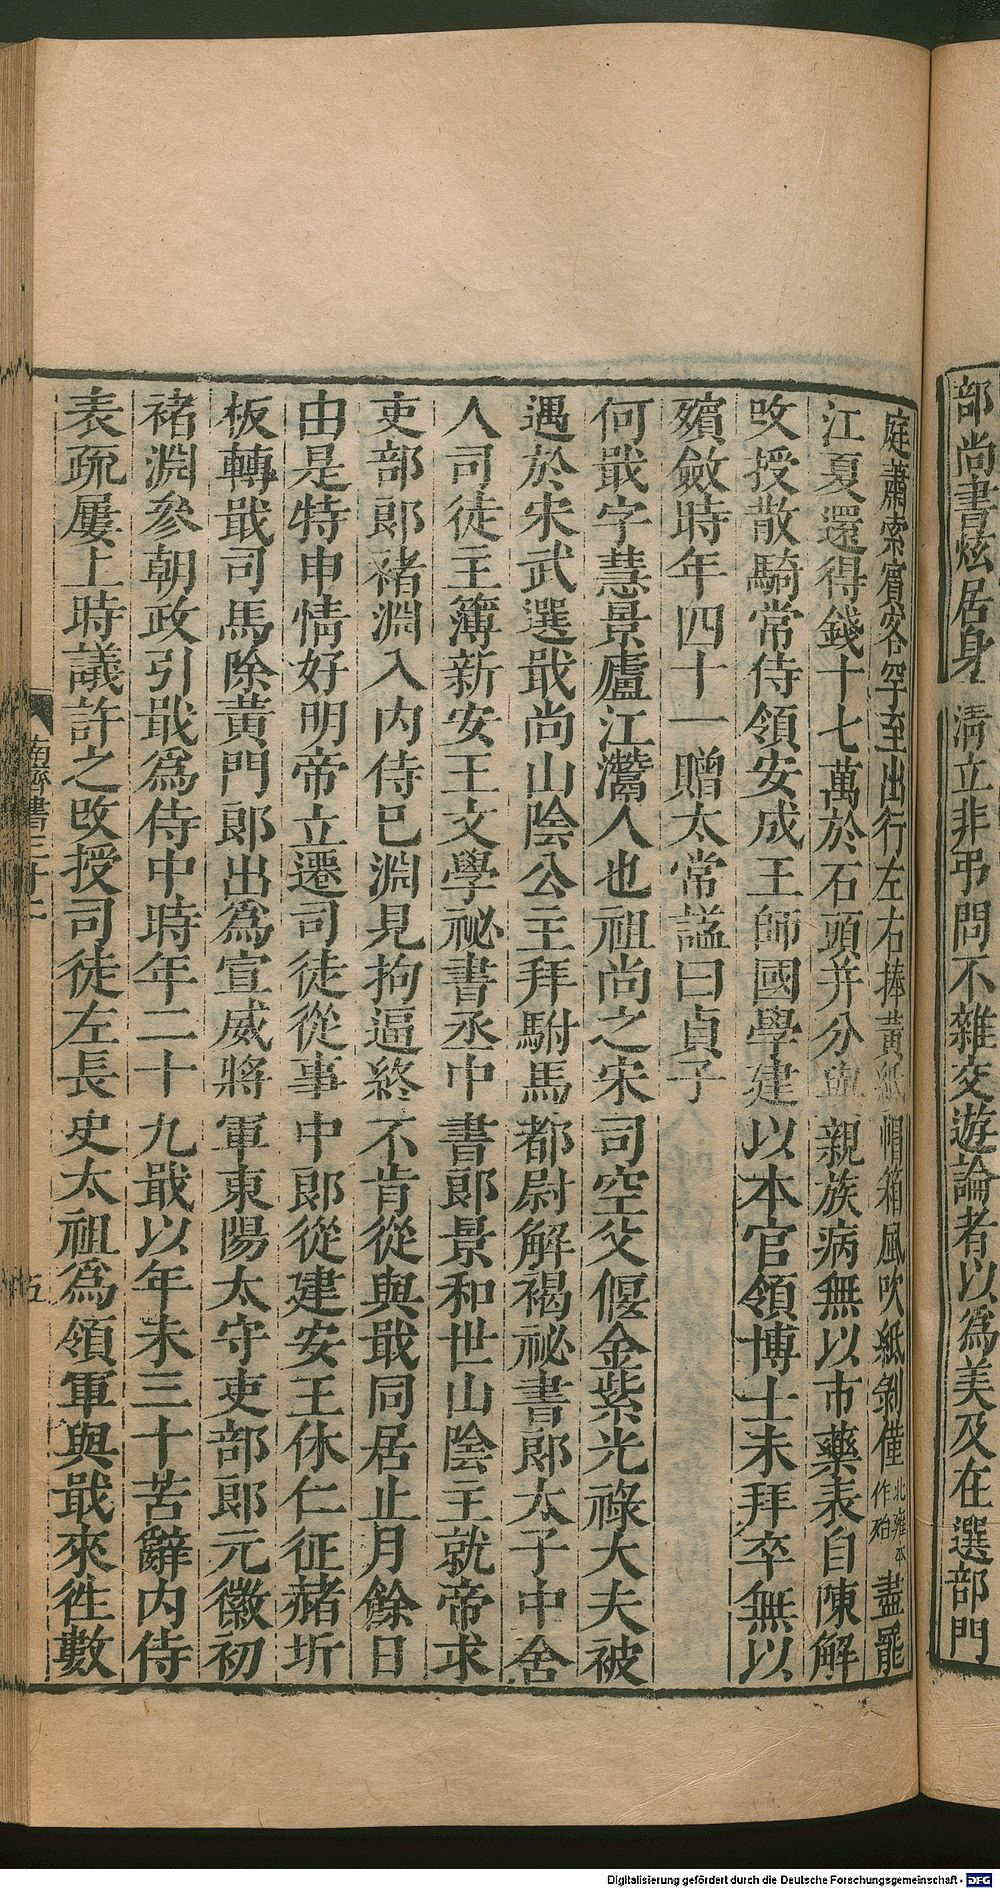 部尚書炫居身清立非弔問不雜交遊論者以爲美及在選部門
庭蕭索賓客罕至出行左右捧黃紙帽箱風吹紙剝僅北雍本作殆盡罷
江夏還得錢十七萬於石頭并分與親族病無以市藥表自陳解
改授散騎常侍領安成王師國學建以本官領博士未拜卒無以
殯斂時年四十一贈太常謚曰貞子
何戢字慧景廬江灊人也祖尚之宋司空父偃金紫光祿大夫被
遇於宋武選戢尚山陰公主拜駙馬都尉解褐祕書郎太子中舍
人司徒主簿新安王文學祕書丞中書郎景和世山陰主就帝求
吏部郎褚淵入內侍已淵見拘逼終不肯從與戢同居止月餘日
由是特申情好明帝立遷司徒從事中郎從建安王休仁征赭圻
板轉戢司馬除黃門郎出爲宣威將軍東陽太守吏部郎元徽初
褚淵參朝政引戢爲侍中時年二十九戢以年未三十苦辭內侍
表疏屢上時議許之改授司徒左長史太祖爲領軍與戢來往數
南齊書三十二
五
Digitalisierung gefördert durch die Deutsche Forschungsgemeinschaft - DFG